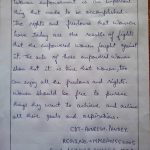 Women empowerment is an important
that made to be accomplished.
The rights and freedoms that women
have today are the results of fights
that the empowered women fought against
it. The acts of these empowered women
show that it is time that women too
can enjoy all the freedoms and rights.
Women should be free to pursue
things they want to achieve, and achieve
all their goals and aspirations.
CDT-